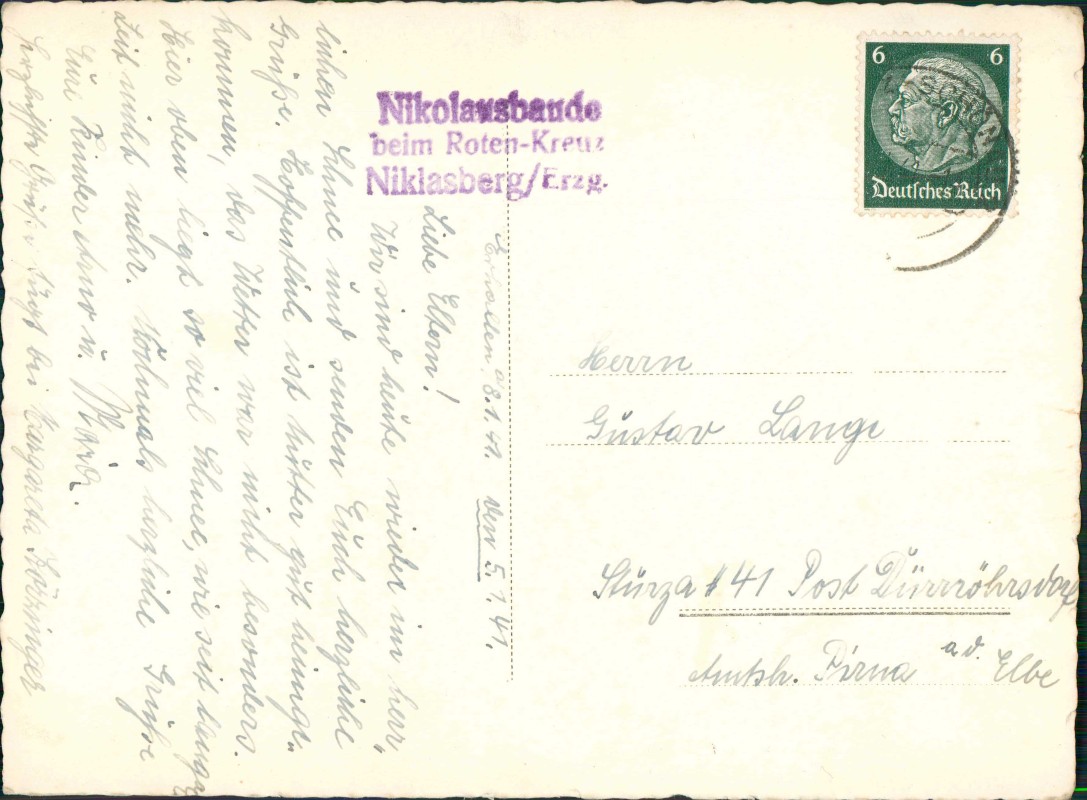 Nikolausbaude
beim Roten-Kreuz
Niklasberg/Erzg.
6 6
Deutsches Reich
Erhalten 8.1.41.
den 5.1.41.
Liebe Eltern!
Wir sind heute wieder im herr„
lichen Schnee und senden Euch herzliche
Grüße. Hoffentlich ist Mutter gut heimge„
kommen, das Wetter war nicht besonders.
Hier oben liegt so viel Schnee, wie seit langer
Zeit nicht mehr. Nochmals herzliche Grüße
Eure Kinder Arno u.
Herzliche Grüße fügt bei
Herrn
Gustav Lange
Stürza # 41 Post Dürrröhrsdorf
Amtsh. Pirna a.d. Elbe